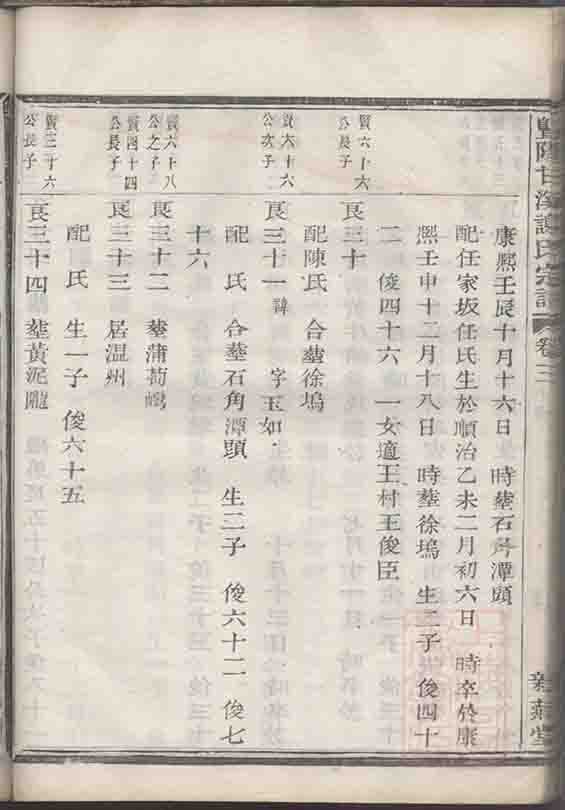 暨陽甘溪謝氏宗譜
卷三
康熙壬辰十月十六日　時塟石角潭頭
配任家坂任氏生於順治乙未二月初六日　時卒於康
熙壬申十二月十八日　時塟徐塢　生二子　俊四十
二　俊四十六　一女適王村王俊臣
賢六十六
公長子
良三十
配陳氏　合塟徐塢
賢六十六
公次子
良三十一諱　字玉如
配　氏　合塟石角潭頭　生二子　俊六十二　俊七
十六
賢六十八
公之子
良三十二　塟蒲萄㘭
賢四十四
公長子
良三十三　居温州
配　氏　生一子　俊六十五
賢三十六
公長子
良三十四　塟黃泥隴